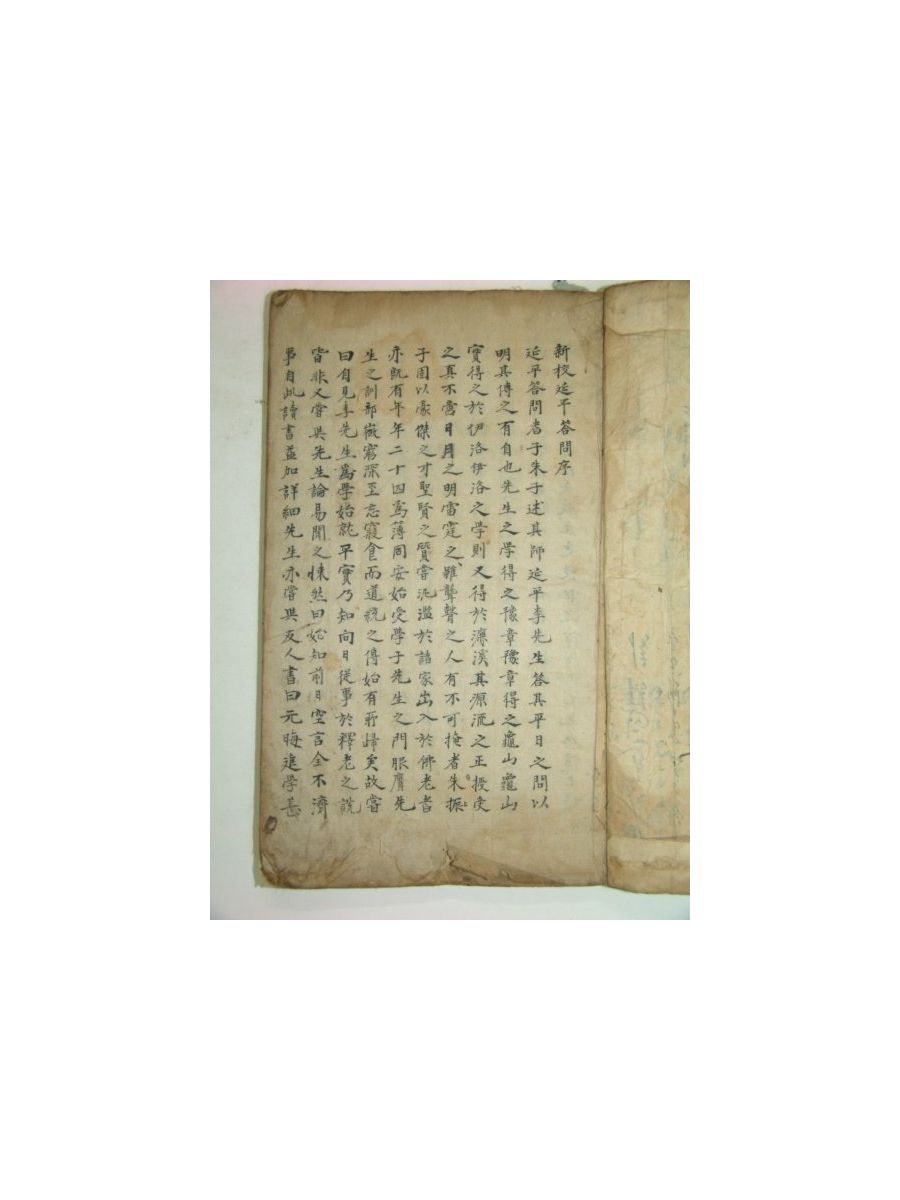 新校延平答問序
延平答問者子朱子述其師延平李先生答其平日之問以
明其傳之有自也先生之學得之豫章豫章得之龜山龜山
實得之於伊洛伊洛之學則又得於濂溪其源流之正授受
之真不啻日月之明雷霆之雖聾瞽之人有不可掩者朱
子固以豪傑之才聖賢之質嘗泛濫於諸家出入於佛老者
亦旣有年年二十四爲薄同安始受學于先生之門服膺先
生之訓部微窮深至忘寢食而道統之傳始有所歸矣故嘗
曰自見李先生爲學始就平實乃知向日從事於釋老之說
皆非又嘗與先生論易聞之悚然曰始知前日空言全不濟
事自此讀書益加詳細先生亦嘗與友人書曰元晦進學甚